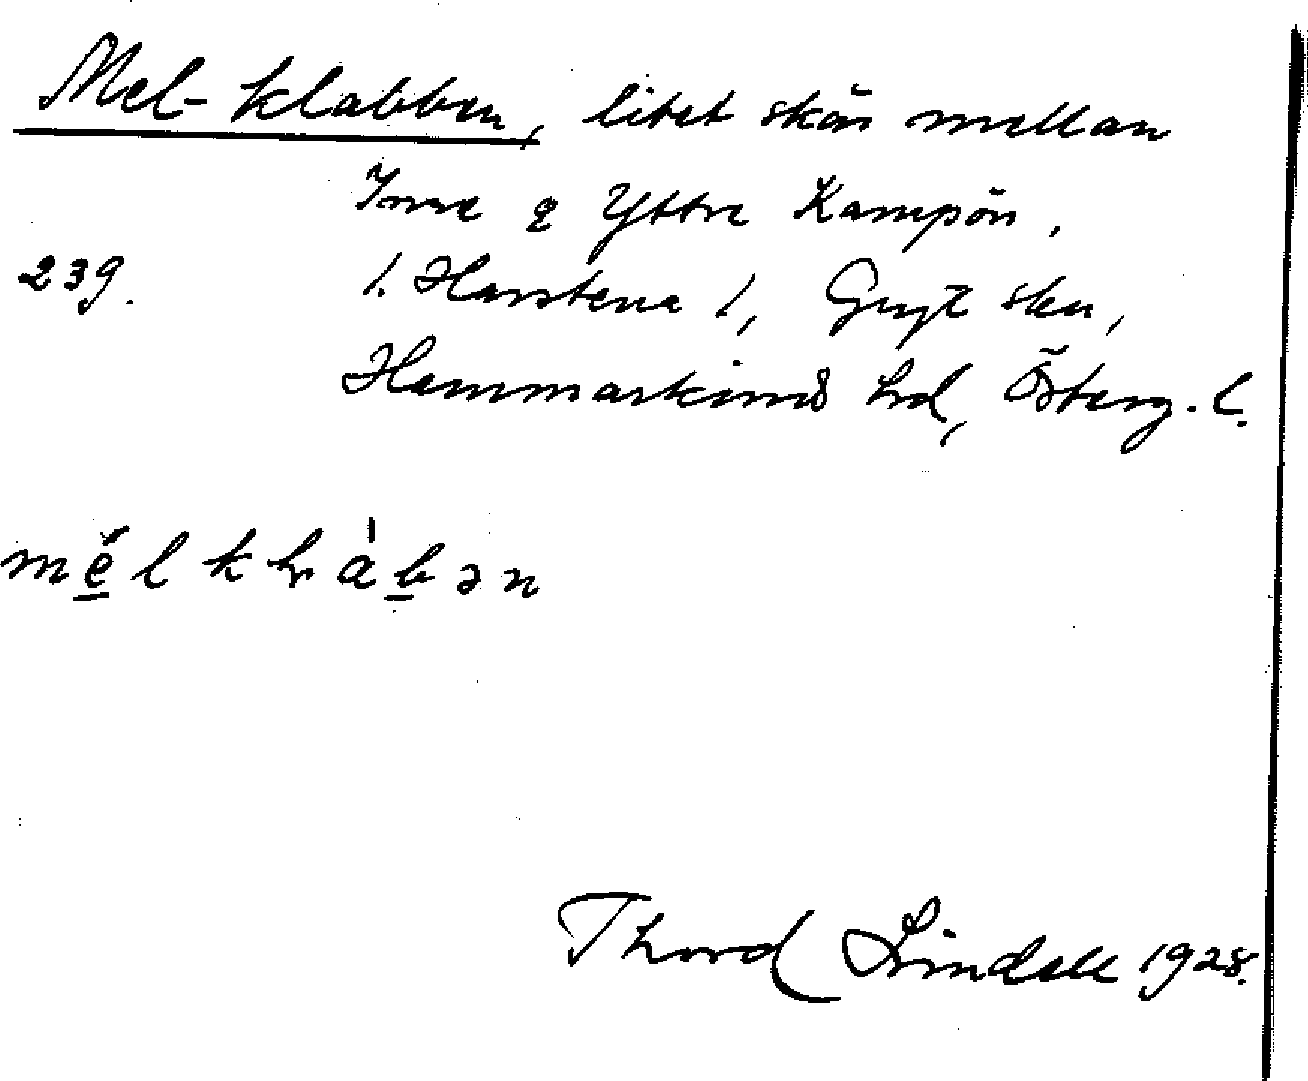 Mel-klabben, litet skär mellan
Inre & Yttre Kampön,
239. /. Harstena /, Gryt skn,
Hammarkinds hrd, Österg. l.
mèlkłàbən
Thord Lindell 1928.